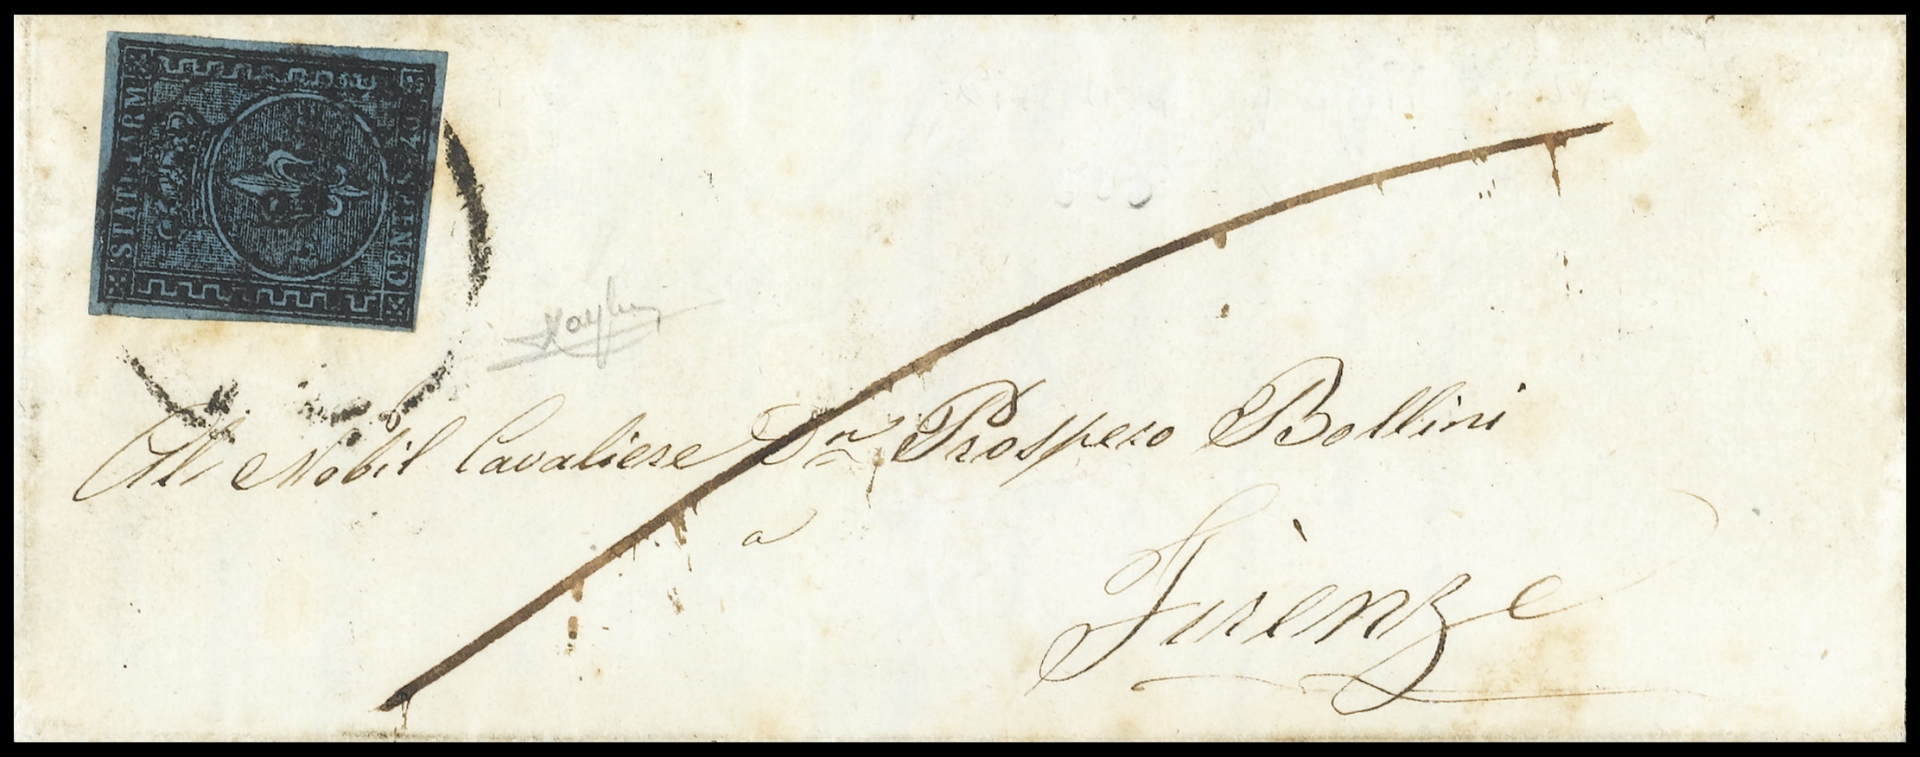 STATI PARM.
CENTES. 40
All Nobil Cavaliere Dn Prospero Bollini
a
Firenze